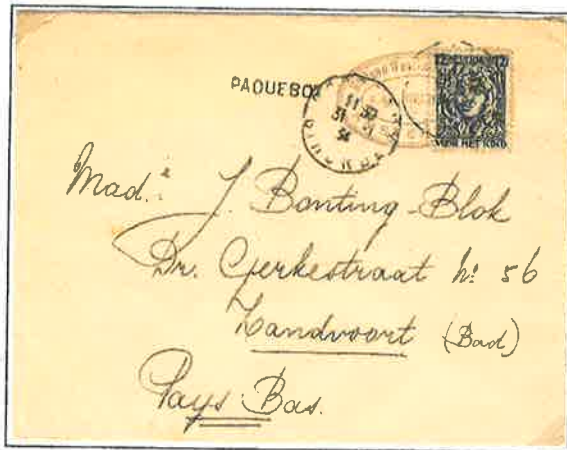 PAQUEBO
11 30
31
34
VOOR HET KIND
Mad.e J. Bonting-Blok
Dr. Gerkestraat No 56
Zandvoort (Bad)
Pays-Bas.